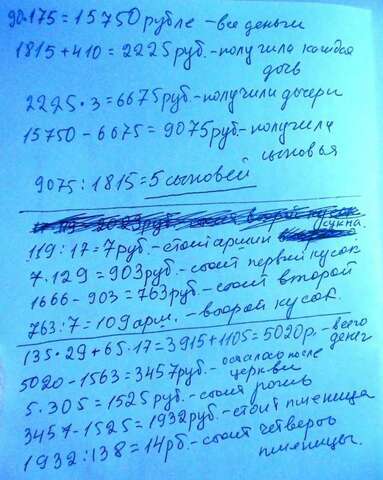 90·175=15750рубле - все деньги
1815+410=2225руб.-получила каждая
дочь
2225·3=6675руб-получили дочери
15750-6675=9075руб-получили
сыновья
9075:1815=5 сыновей
сукна.
119:17=7руб.-стоит аршин
7·129=903руб.-стоит первый кусок
1666-903=763руб-стоит второй
763:7=109арш.-второй кусок.
135·29+65·17=3915+1105=5020р.-всего
денег
5020-1563=3457руб.-осталось после
церкви
5·305=1525руб.-стоит рожь
3457-1525=1932руб.-стоит пшеница
1932:138=14рб-стоит четверть
пшеницы.